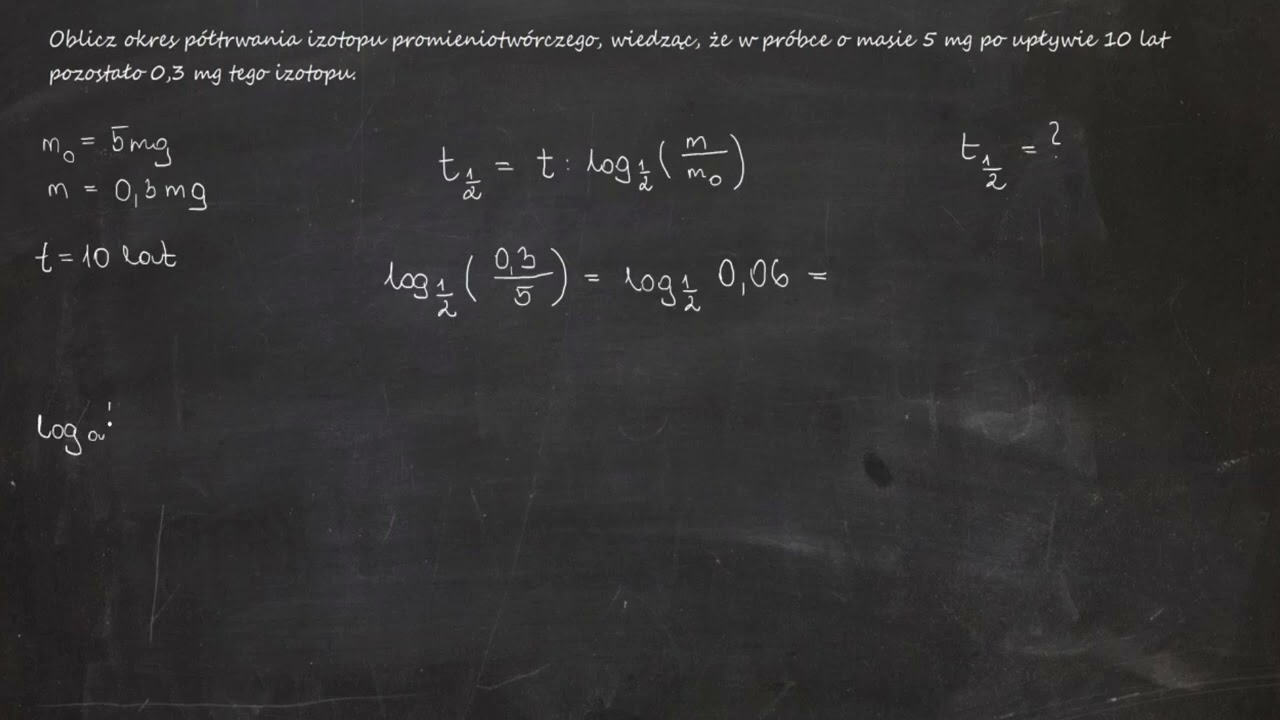 Oblicz okres półtrwania izotopu promieniotwórczego, wiedząc, że w próbce o masie 5 mg po upływie 10 lat
pozostało 0,3 mg tego izotopu.
m₀ = 5mg
m = 0,3mg
t = 10 lat
t_{1/2} = t : log_{1/2} (m/m₀)
t_{1/2} = ?
log_{1/2} (0,3/5) = log_{1/2} 0,06 =
log_a